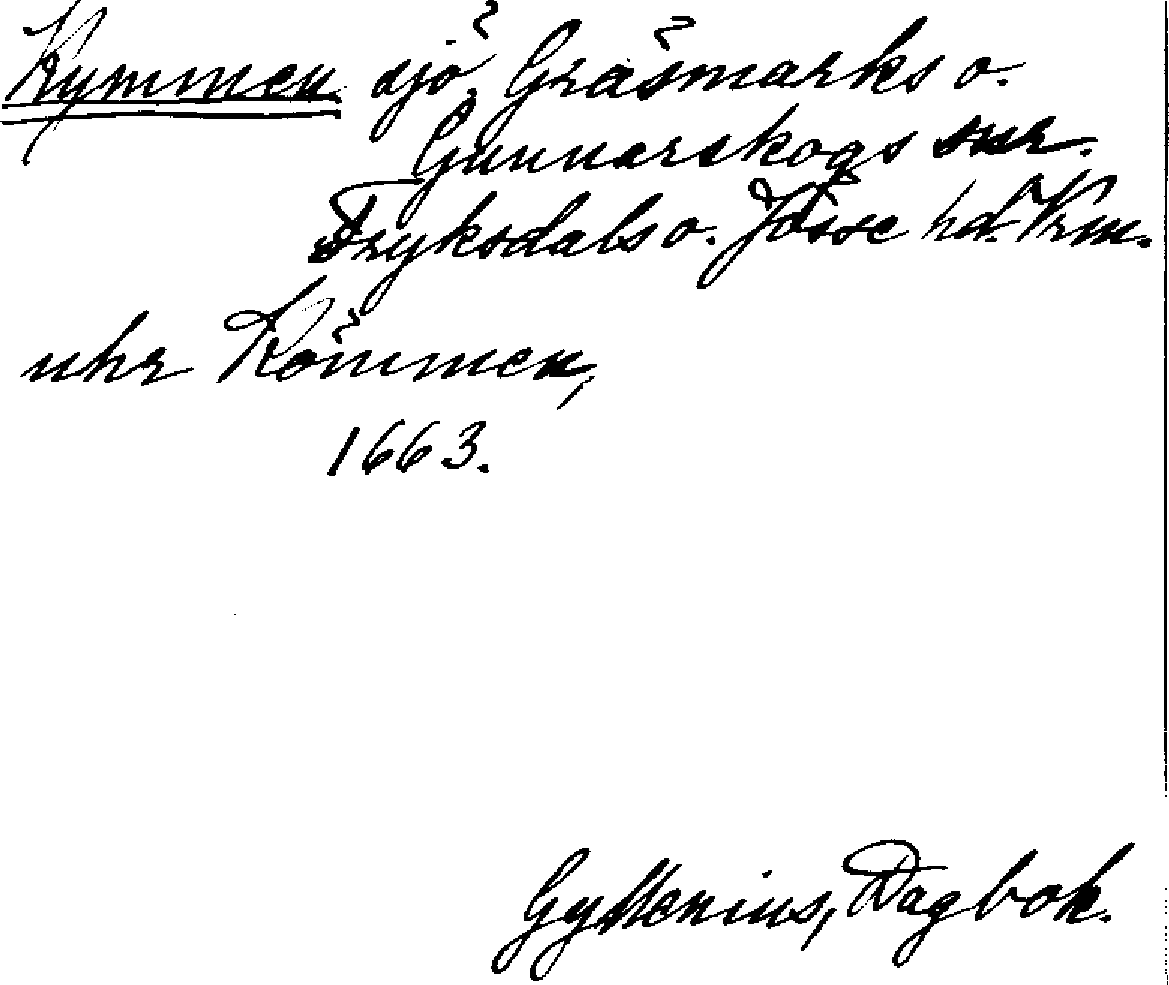 Kymmen sjö, Gräsmarks o.
Gunnarskogs snr.
Fryksdals o. Jösse hd. Vrm.
uhr Kömmen,
1663.
Gyllenius, Dagbok.